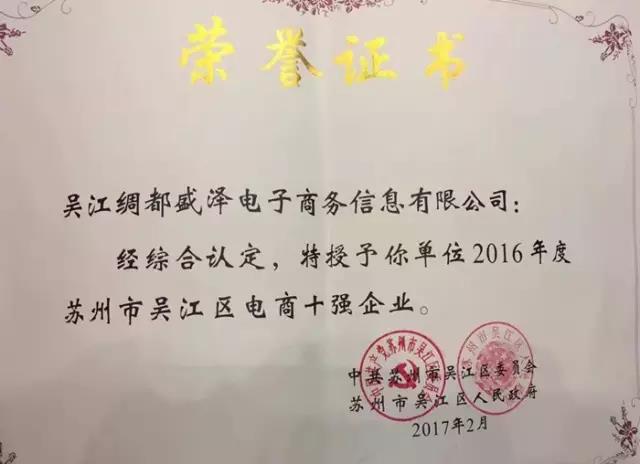 荣誉证书
吴江绸都盛泽电子商务信息有限公司：
经综合认定，特授予你单位2016年度
苏州市吴江区电商十强企业。
中共苏州市吴江区委员会
苏州市吴江区人民政府
2017年2月